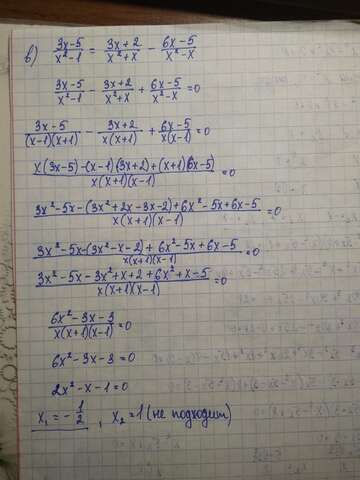 в) (3x-5)/(x²-1) = (3x+2)/(x²+x) - (6x-5)/(x²-x)
(3x-5)/(x²-1) - (3x+2)/(x²+x) + (6x-5)/(x²-x) =0
(3x-5)/((x-1)(x+1)) - (3x+2)/(x(x+1)) + (6x-5)/(x(x-1)) =0
(x(3x-5)-(x-1)(3x+2)+(x+1)(6x-5))/(x(x+1)(x-1)) =0
(3x²-5x-(3x²+2x-3x-2)+6x²-5x+6x-5)/(x(x+1)(x-1)) =0
(3x²-5x-(3x²-x-2)+6x²-5x+6x-5)/(x(x+1)(x-1)) =0
(3x²-5x-3x²+x+2+6x²+x-5)/(x(x+1)(x-1)) =0
(6x²-3x-3)/(x(x+1)(x-1)) =0
6x²-3x-3=0
2x²-x-1=0
x₁=-1/2, x₂=1 (не подходит)